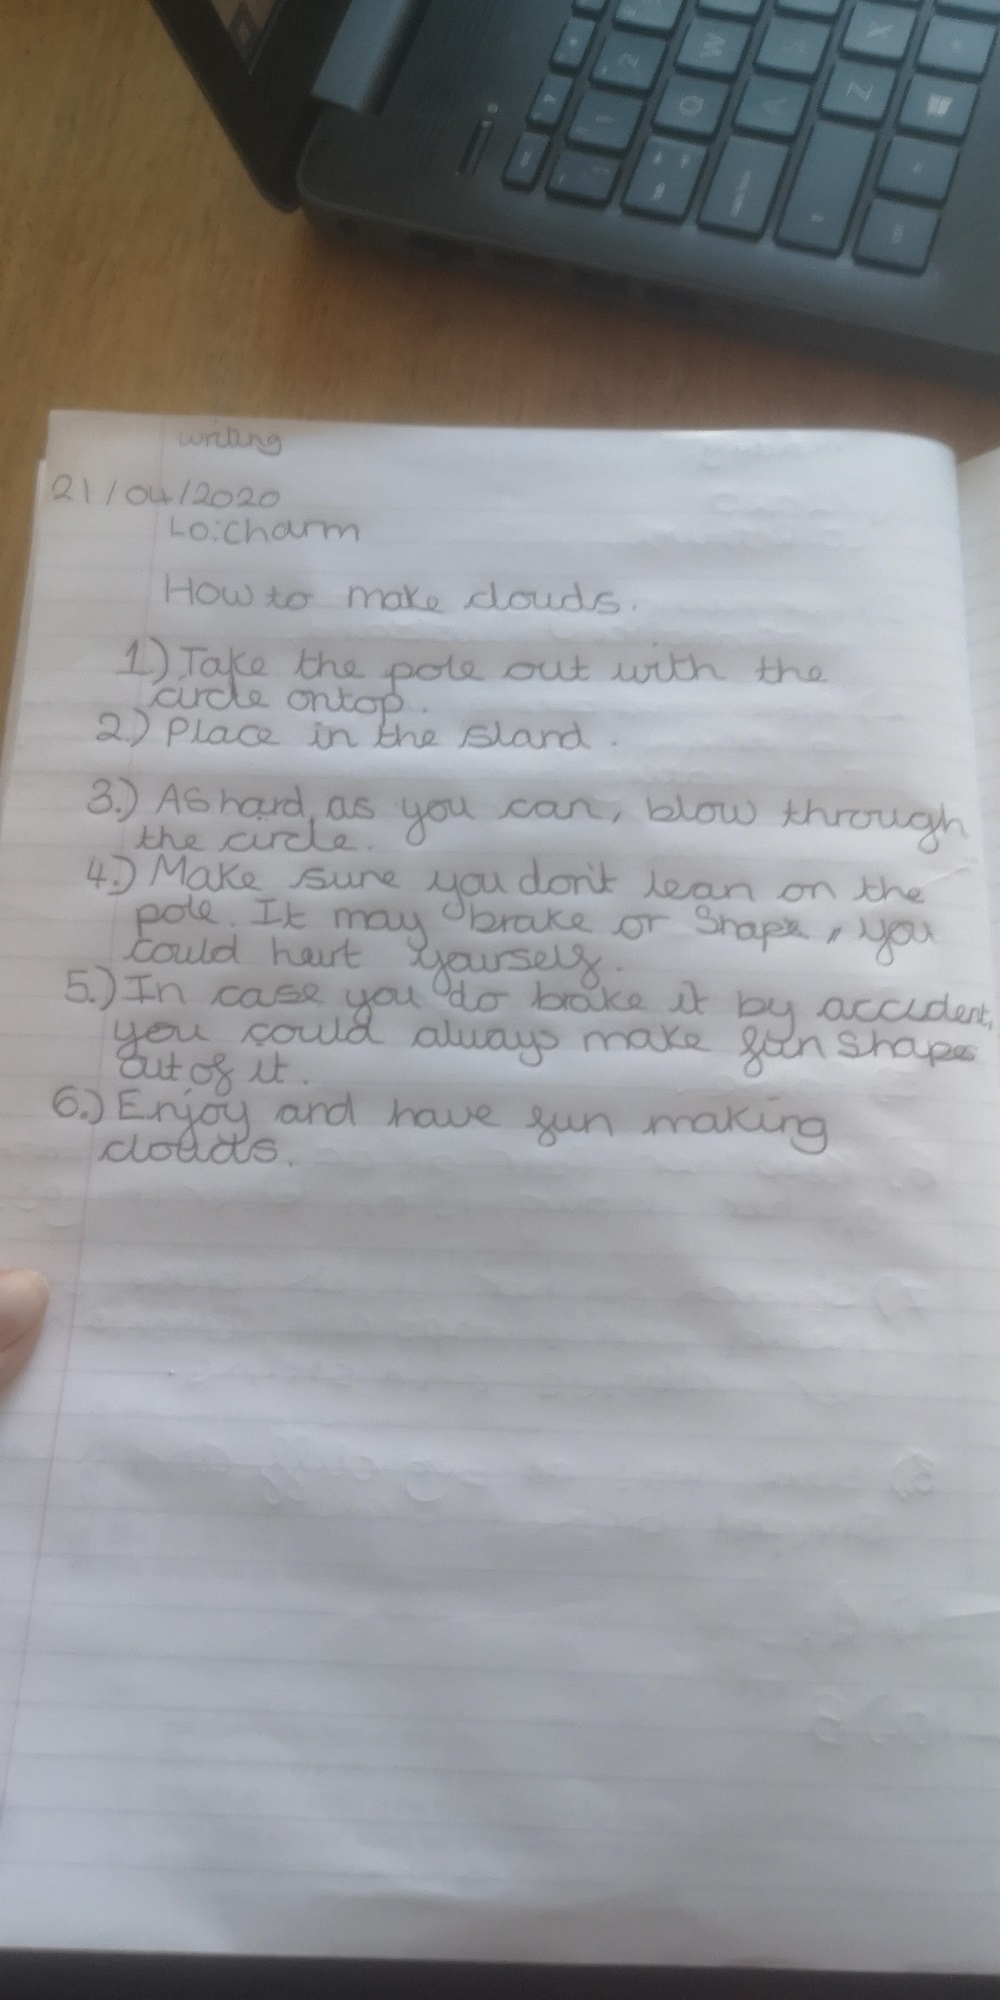 writing
21/04/2020
Lo:charm
How to make clouds.
1.) Take the pole out with the
circle ontop.
2.) Place in the stand.
3.) As hard as you can, blow through
the circle.
4.) Make sure you don't lean on the
pole. It may brake or Snape, you
could hurt yourself.
5.) In case you do brake it by accident,
you could always make fun shapes
out of it.
6.) Enjoy and have fun making
clouds.